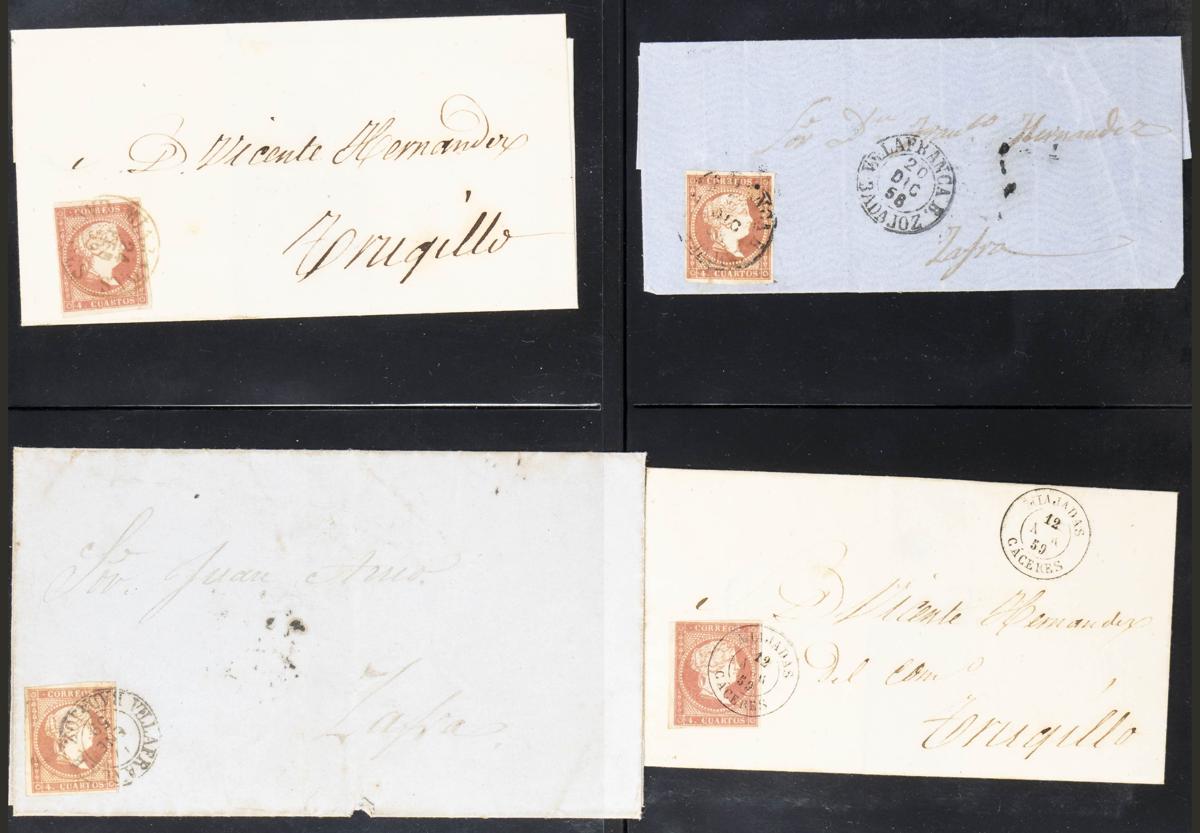 D. Vicente Hernandez
Trugillo
CORREOS
4 CUARTOS
Sor Dn Hernandez
VILLAFRANCA B.
20
DIC
58
BADAJOZ
Zafra
CORREOS
DIC
4 CUARTOS
Sor. Juan Amo.
Zafra
CORREOS
4 CUARTOS
VILLAFRA
MIAJADAS
12
59
CÁCERES
D. Vicente Hernandez
del comº
Trugillo
CORREOS
4 CUARTOS
MIAJADAS
12
59
CÁCERES